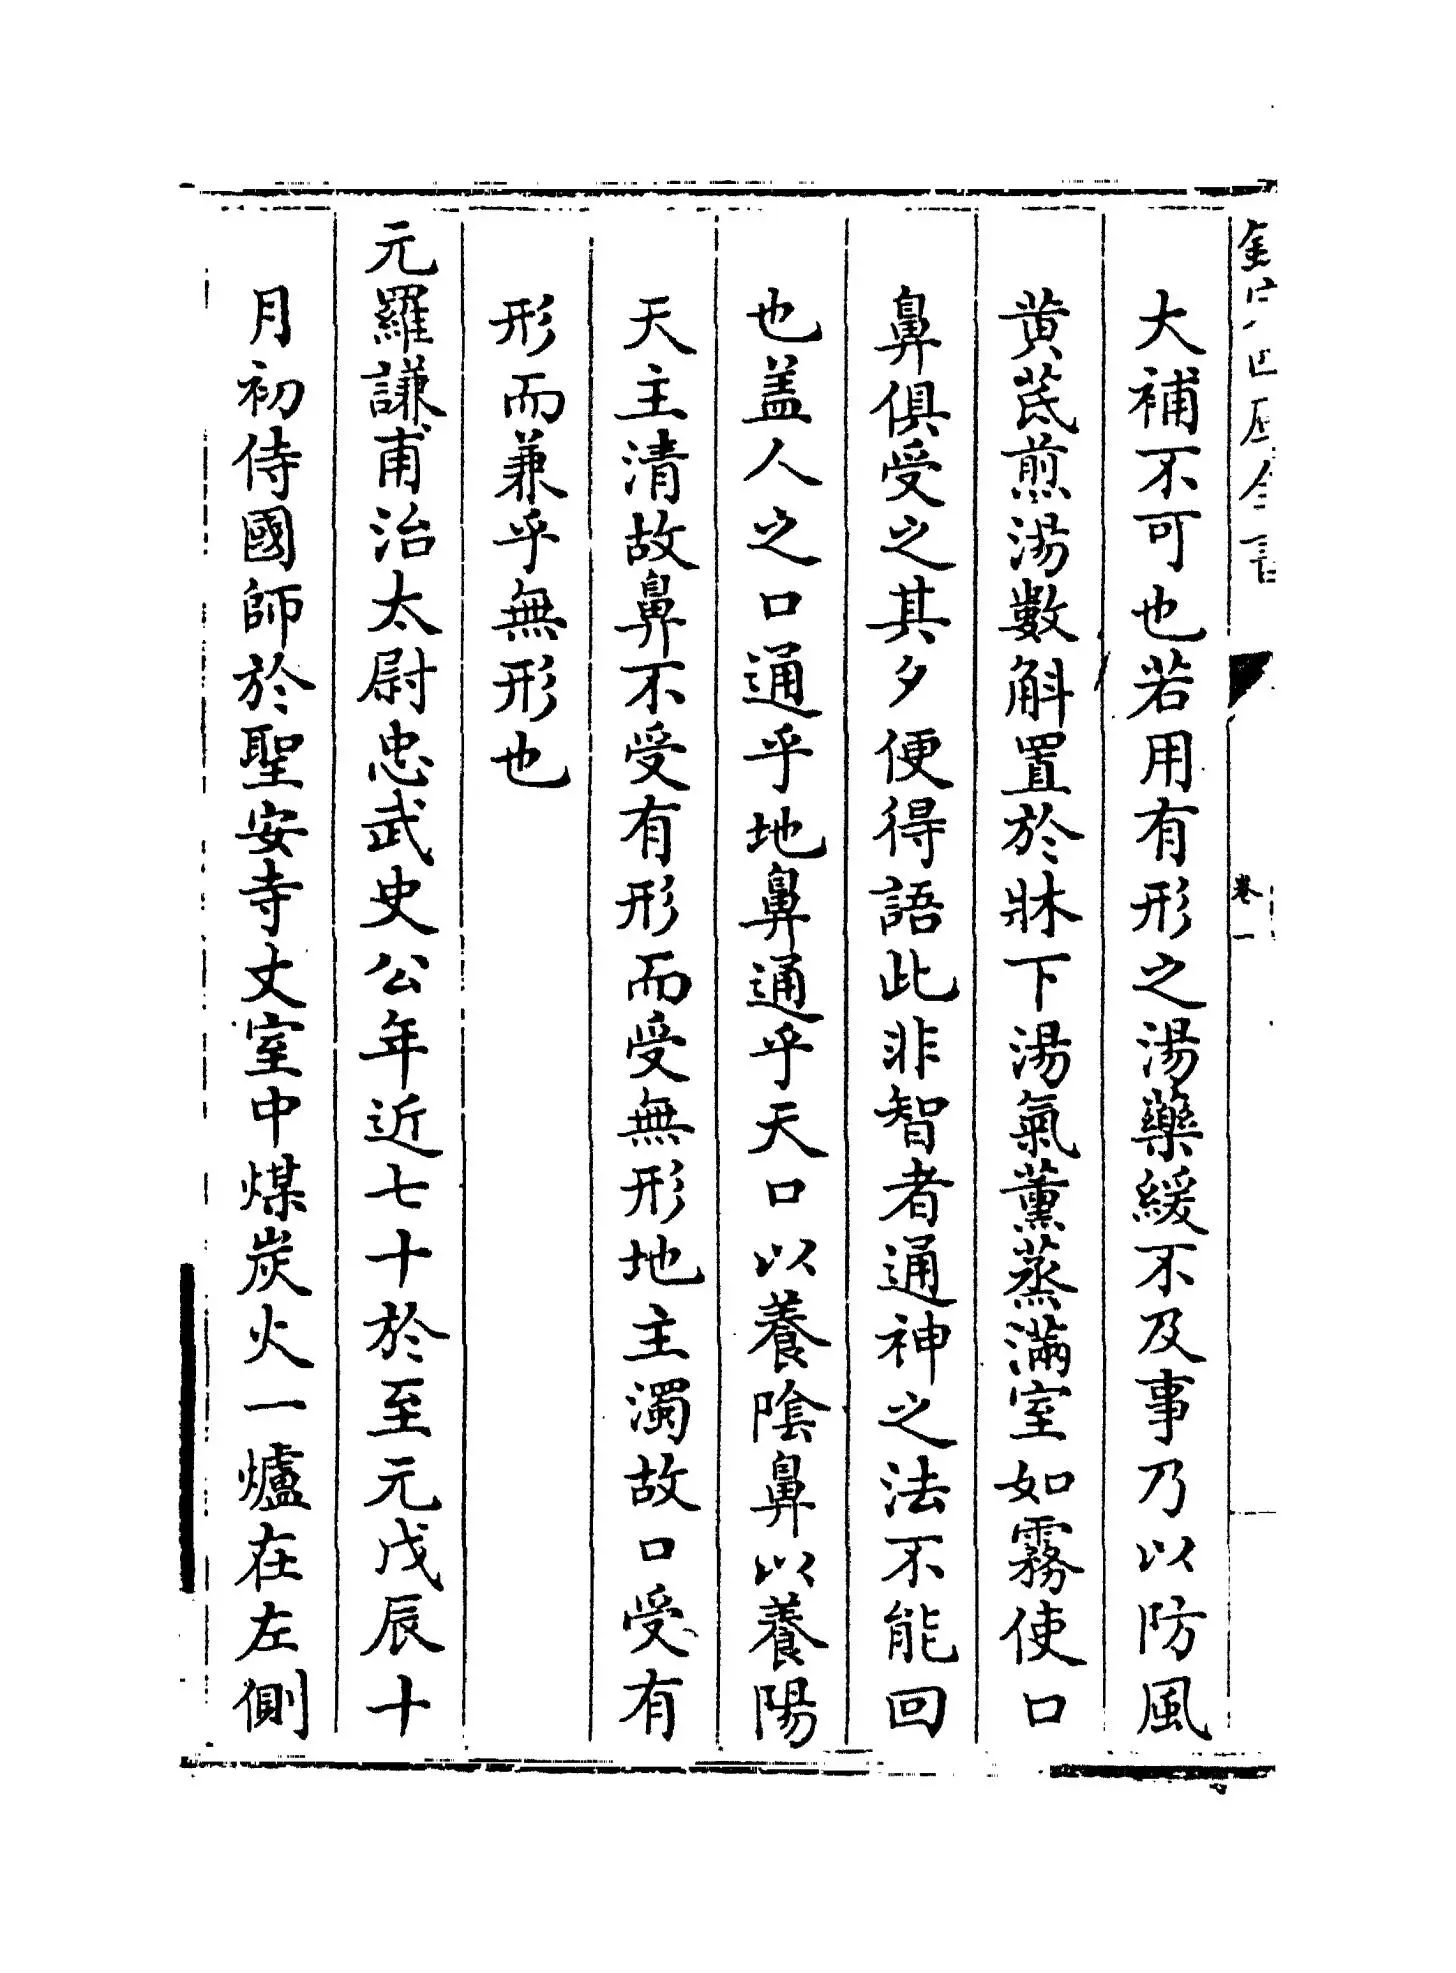 大補不可也若用有形之湯藥緩不及事乃以防風
黄茋煎湯數斛置於牀下湯氣薰蒸滿室如霧使口
鼻俱受之其夕便得語此非智者通神之法不能回
也盖人之口通乎地鼻通乎天口以養陰鼻以養陽
天主清故鼻不受有形而受無形地主濁故口受有
形而兼乎無形也
元羅謙甫治太尉忠武史公年近七十於至元戊辰十
月初侍國師於聖安寺丈室中煤炭火一爐在左側
卷一